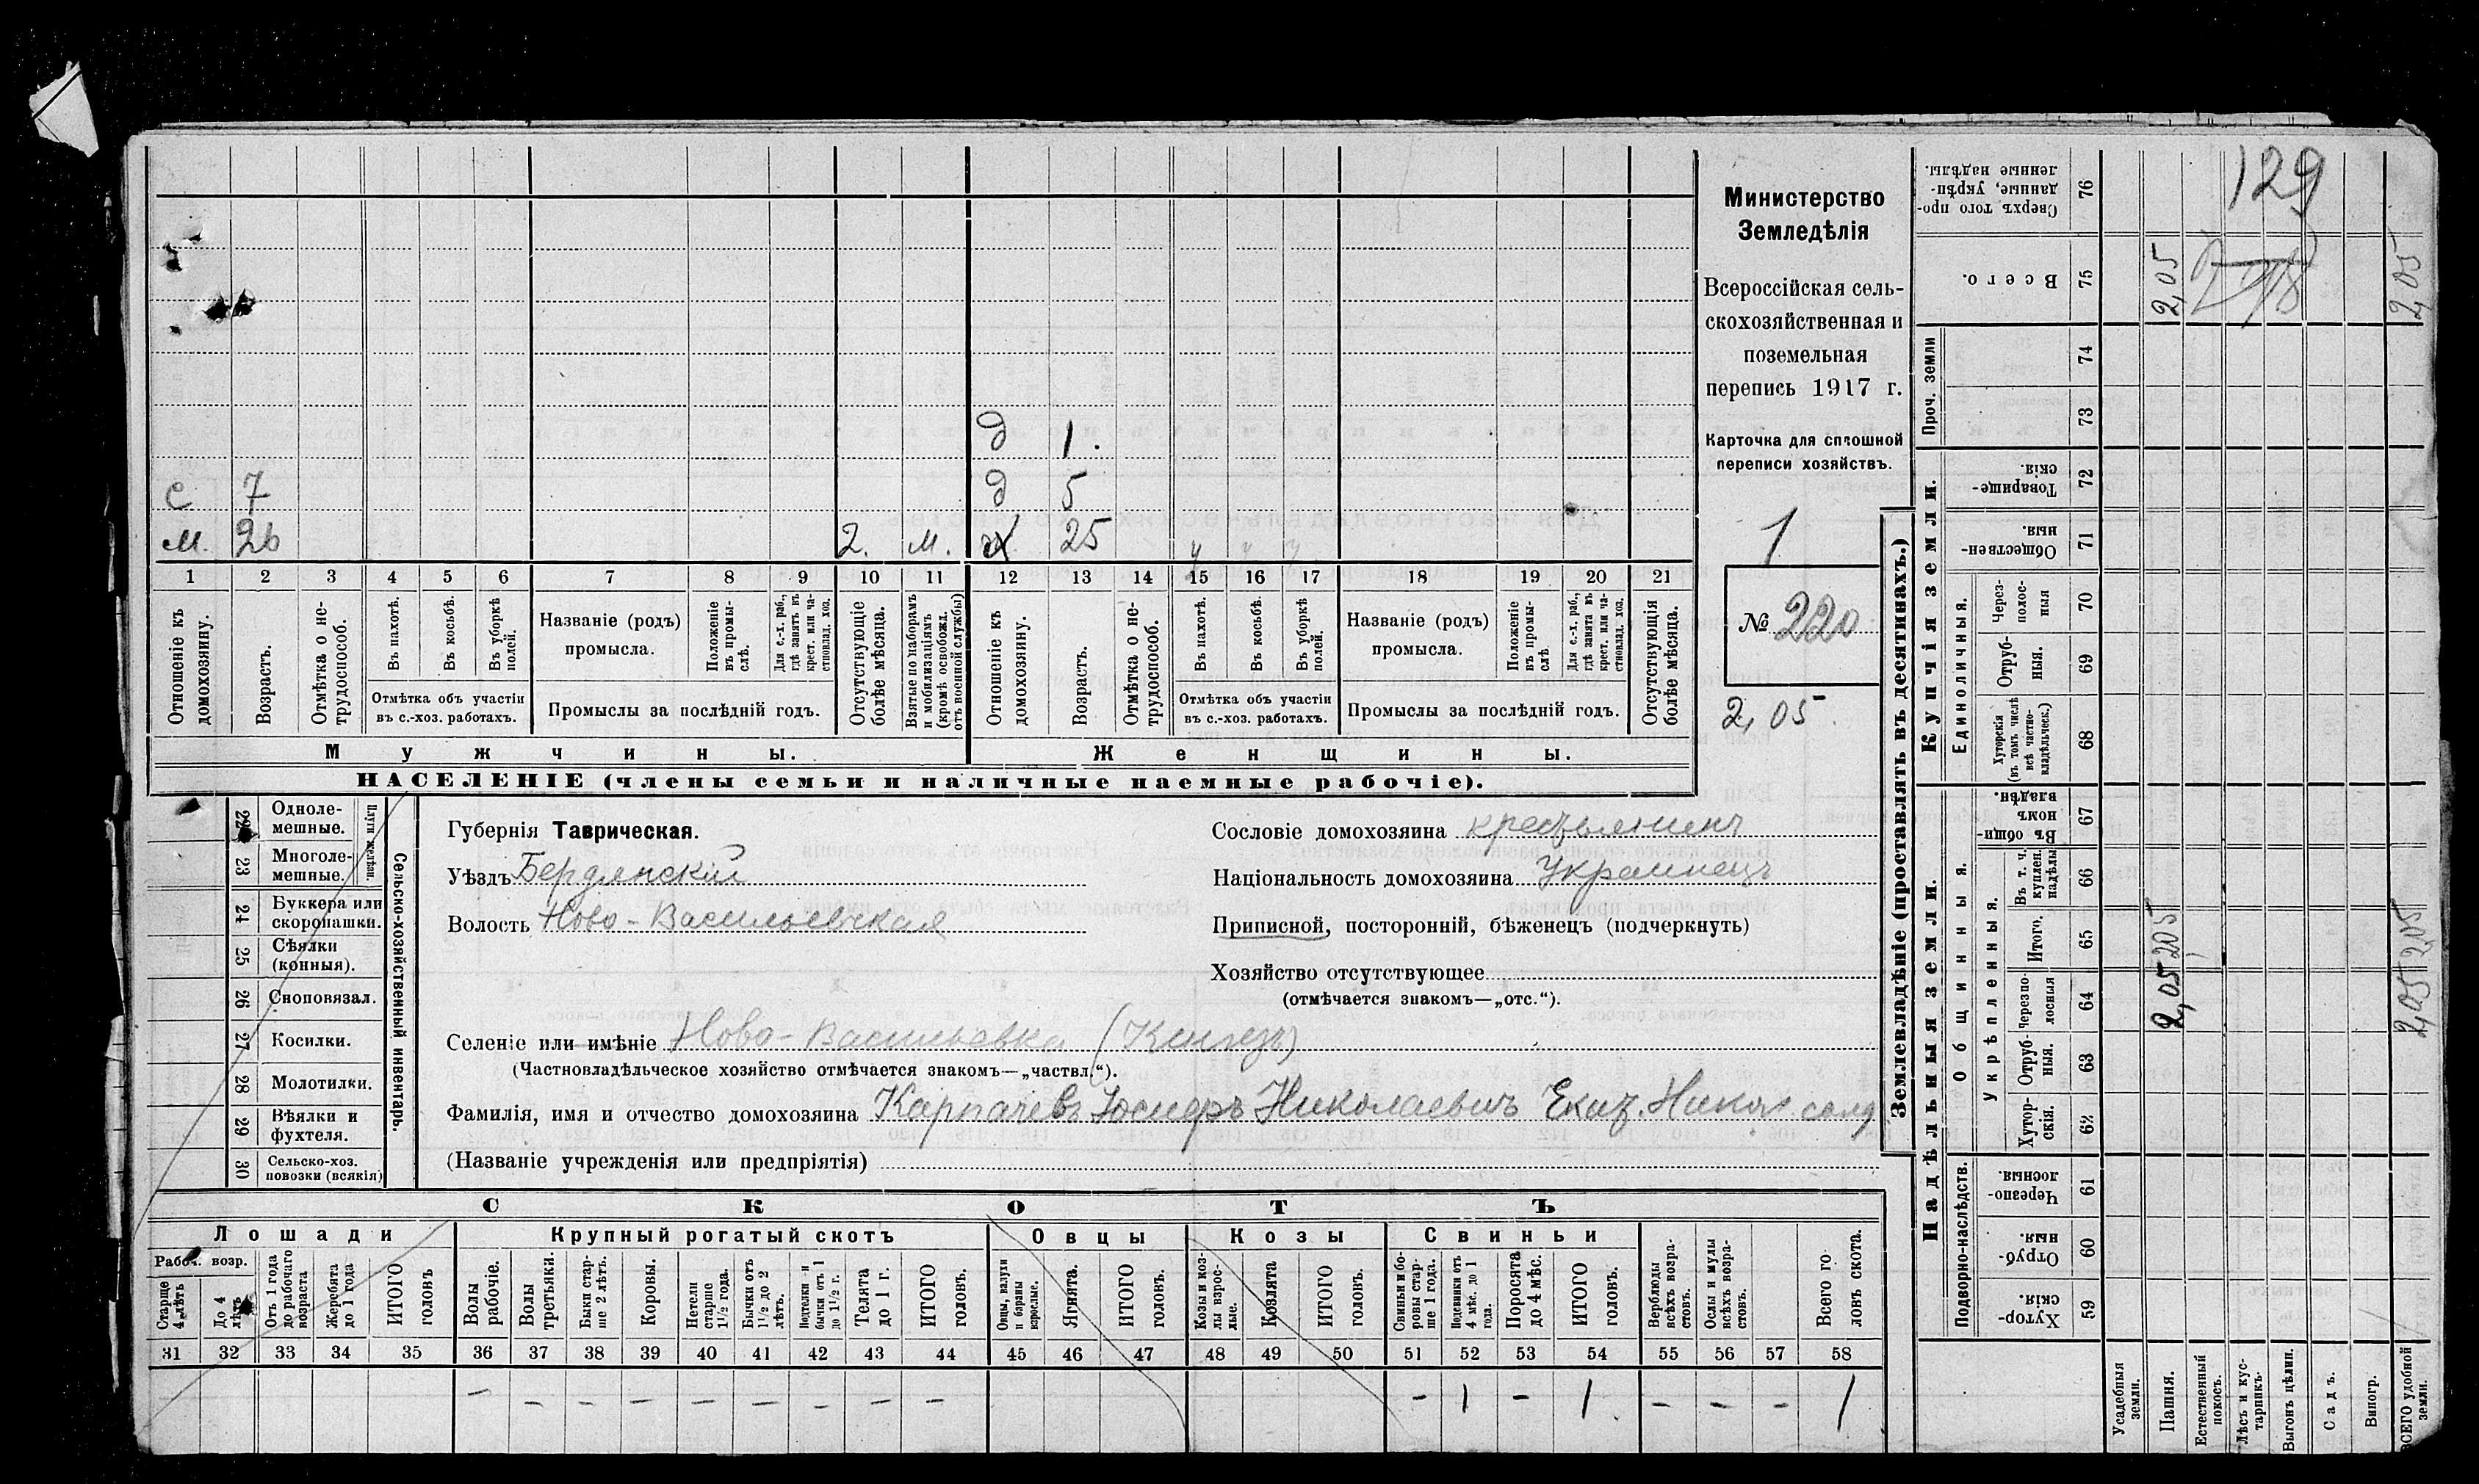 129
Министерство
Земледѣлія
Всероссійская сель-
скохозяйственная и
поземельная
перепись 1917 г.
Карточка для сплошной
переписи хозяйствъ.
1
№ 220
2,05
д 1.
с 7 д 5
м. 26 2. м. 25 у у у
1 2 3 4 5 6 7 8 9 10 11 12 13 14 15 16 17 18 19 20 21
Отношеніе къ домохозяину.
Возрастъ.
Отмѣтка о не-трудоспособ.
Въ пахотѣ.
Въ косьбѣ.
Въ уборкѣ полей.
Отмѣтка объ участіи
въ с.-хоз. работахъ.
Названіе (родъ)
промысла.
Положеніе въ промы-слѣ.
Для с.-х. раб., гдѣ занятъ въ крест. или ча-стновлад. хоз.
Промыслы за послѣдній годъ.
Отсутствующіе болѣе мѣсяца.
Взятые по наборамъ и мобилизаціямъ (кромѣ освобожд. отъ военной службы)
Отношеніе къ домохозяину.
Возрастъ.
Отмѣтка о не-трудоспособ.
Въ пахотѣ.
Въ косьбѣ.
Въ уборкѣ полей.
Отмѣтка объ участіи
въ с.-хоз. работахъ.
Названіе (родъ)
промысла.
Положеніе въ промы-слѣ.
Для с.-х. раб., гдѣ занята въ крест. или ча-стновлад. хоз.
Промыслы за послѣдній годъ.
Отсутствующія болѣе мѣсяца.
Мужчины. Женщины.
НАСЕЛЕНІЕ (члены семьи и наличные наемные рабочіе).
22 Одноле-мешные.
23 Многоле-мешные.
Плуги желѣзн.
24 Буккера или скоропашки.
25 Сѣялки (конныя).
26 Сноповязал.
27 Косилки.
28 Молотилки.
29 Вѣялки и фухтеля.
30 Сельско-хоз. повозки (всякія)
Сельско-хозяйственный инвентарь.
Губернія Таврическая.
Уѣздъ Бердянскій
Волость Ново-Васильевская
Сословіе домохозяина крестьянинъ
Національность домохозяина Украинецъ
Приписной, посторонній, бѣженецъ (подчеркнуть)
Хозяйство отсутствующее
(отмѣчается знакомъ—„отс.“).
Селеніе или имѣніе Ново-Васильевка
(Частновладѣльческое хозяйство отмѣчается знакомъ—„частвл.“).
Фамилія, имя и отчество домохозяина Карпачевъ Іосифъ Николаевичъ Екат. солд
(Названіе учрежденія или предпріятія)
СКОТЪ
Лошади Крупный рогатый скотъ Овцы Козы Свиньи
Рабоч. возр.
Старше 4 лѣтъ
До 4 лѣтъ
Отъ 1 года до рабочаго возраста
Жеребята до 1 года
ИТОГО головъ
Волы рабочіе.
Волы третьяки.
Быки стар-ше 2 лѣтъ.
Коровы.
Нетели старше 1½ года.
Бычки отъ 1½ до 2 лѣтъ.
Подтелки и бычки отъ 1 до 1½ г.
Телята до 1 г.
ИТОГО головъ.
Овцы, валухи и бараны взрослые.
Ягнята.
ИТОГО головъ.
Козы и коз-лы взрос-лые.
Козлята
ИТОГО головъ.
Свиньи и бо-ровы стар-ше 1 года.
Подсвинки отъ 4 мѣс. до 1 года.
Поросята до 4 мѣс.
ИТОГО головъ.
Верблюды всѣхъ возра-стовъ.
Ослы и мулы всѣхъ возра-стовъ.
Всего го-ловъ скота.
31 32 33 34 35 36 37 38 39 40 41 42 43 44 45 46 47 48 49 50 51 52 53 54 55 56 57 58
– – – – – – – – – – 1 – 1 – – – 1
Землевладѣніе (проставлять въ десятинахъ.)
Надѣльныя земли. Купчія земли. Проч. земли
Подворно-наслѣдств.
Общинныя.
Укрѣпленныя.
Единоличныя.
59 Хутор-скія.
60 Отруб-ныя.
61 Черезпо-лосныя
62 Хутор-скія.
63 Отруб-ныя.
64 Черезпо-лосныя
65 Итого.
66 Въ т. ч. куплен. надѣлы
67 Въ общи-номъ владѣн.
68 Хуторскія (въ томъ числѣ всѣ частно-владѣльческ.)
69 Отруб-ныя.
70 Через-полос-ныя
71 Обществен-ныя.
72 Товарище-скія.
73
74
75 Всего.
76 Сверхъ того про-данные, укрѣп-ленные надѣлы.
Усадебныя земли.
Пашня. 2,05 2,05 2,05
Естественный покосъ.
Лѣсъ и кус-тарникъ.
Выгонъ цѣлин.
Садъ.
Виногр.
ВСЕГО удобной земли. 2,05 2,05 2,05